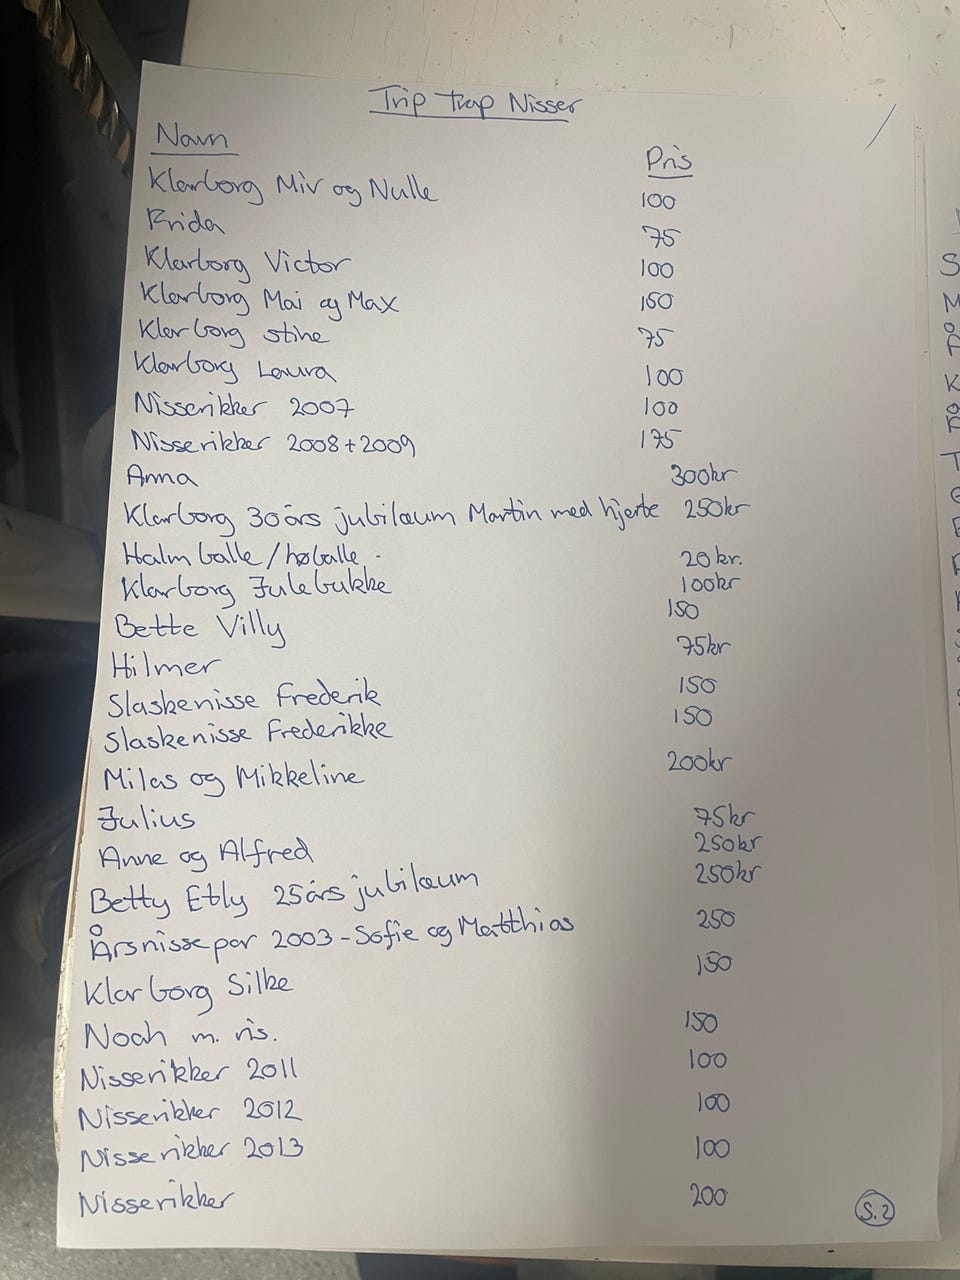 Trip trap Nisser
Navn Pris
Klarborg Miv og Nulle 100
Frida 75
Klarborg Victor 100
Klarborg Mai og Max 150
Klarborg stine 75
Klarborg Laura 100
Nisserikker 2007 100
Nisserikker 2008+2009 175
Anna 300kr
Klarborg 30års jubilæum Martin med hjerte 250kr
Halmballe/høballe. 20kr.
Klarborg Julebukke 100kr
Bette Villy 150
Hilmer 75kr
Slaskenisse Frederik 150
Slaskenisse Frederikke 150
Milas og Mikkeline 200kr
Julius 75kr
Anne og Alfred 250kr
Betty Etly 25års jubilæum 250kr
Årsnissepar 2003-Sofie og Matthias 250
Klarborg Silke 150
Noah m. ris. 150
Nisserikker 2011 100
Nisserikker 2012 100
Nisserikker 2013 100
Nisserikker 200
S.2